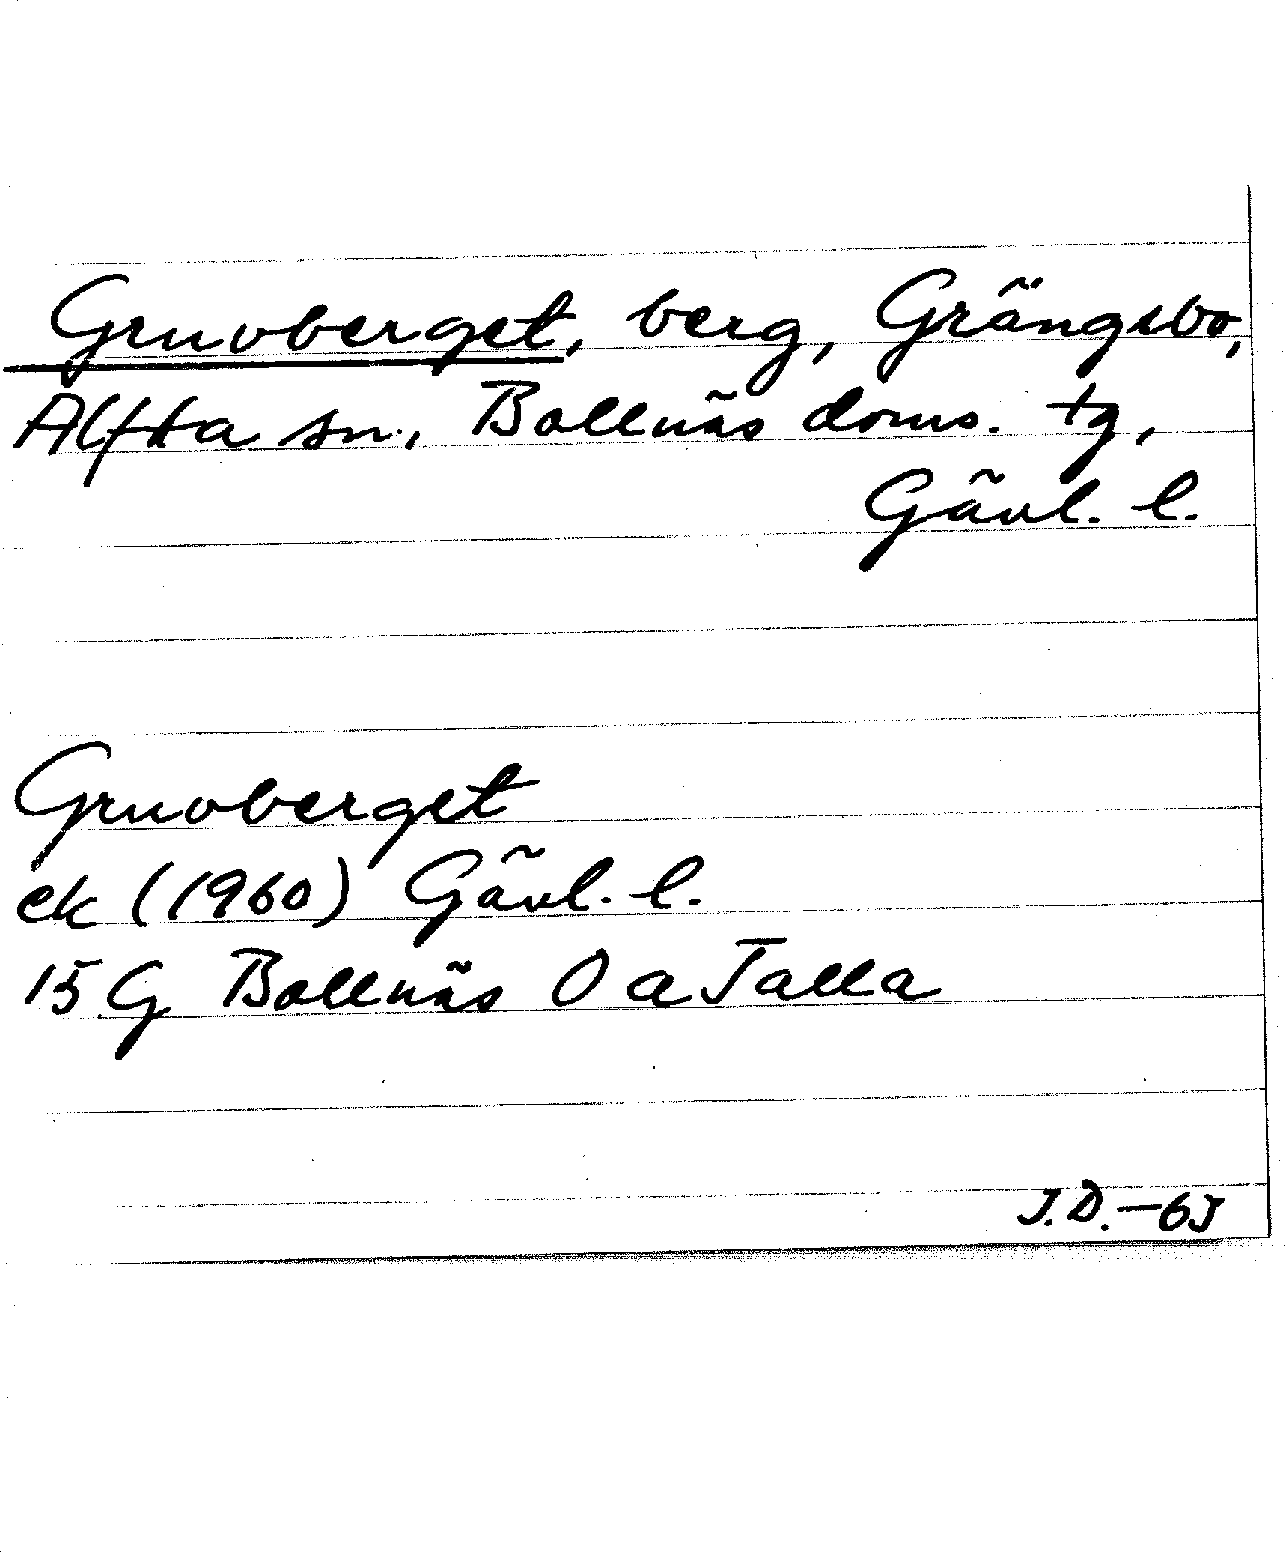 Gruvberget, berg, Grängsbo,
Alfta sn., Bollnäs doms. tg,
Gävl. l.
Gruvberget
ek (1960) Gävl. l.
15 G Bollnäs 0 a Talla
J.D. -65